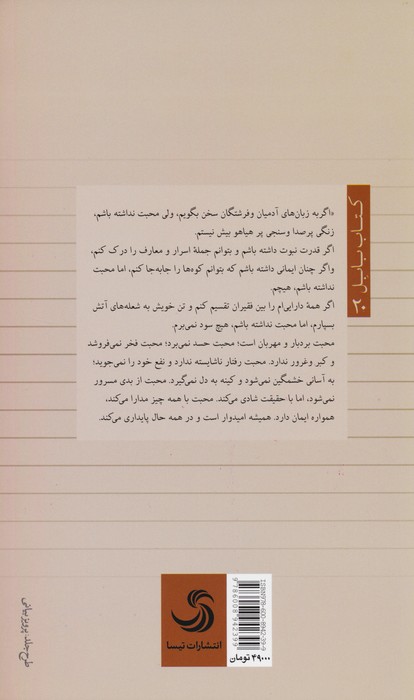 کتاب بابل ۲۰
«اگر به زبان‌های آدمیان وفرشتگان سخن بگویم، ولی محبت نداشته باشم،
زنگی پرصدا وسنجی پر هیاهو بیش نیستم.
اگر قدرت نبوت داشته باشم و بتوانم جملهٔ اسرار و معارف را درک کنم،
واگر چنان ایمانی داشته باشم که بتوانم کوه‌ها را جابه‌جا کنم، اما محبت
نداشته باشم، هیچم.
اگر همهٔ دارایی‌ام را بین فقیران تقسیم کنم و تن خویش به شعله‌های آتش
بسپارم، اما محبت نداشته باشم، هیچ سود نمی‌برم.
محبت بردبار و مهربان است؛ محبت حسد نمی‌برد؛ محبت فخر نمی‌فروشد
و کبر وغرور ندارد. محبت رفتار ناشایسته ندارد و نفع خود را نمی‌جوید؛
به آسانی خشمگین نمی‌شود و کینه به دل نمی‌گیرد. محبت از بدی مسرور
نمی‌شود، اما با حقیقت شادی می‌کند. محبت با همه چیز مدارا می‌کند،
همواره ایمان دارد. همیشه امیدوار است و در همه حال پایداری می‌کند.
انتشارات تیسا
ISBN978-600-8942-39-9
9786008942399
۴۹۰۰۰ تومان
طرح جلد: پرویز بیانی